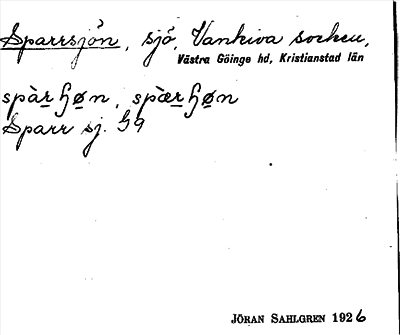 Sparrsjön, sjö, Vankiva socken,
Västra Göinge hd, Kristianstad län
spàr̲ ɧø̲n, spær̲ ɧø̲n
Sparr sj. G9
JÖRAN SAHLGREN 1926